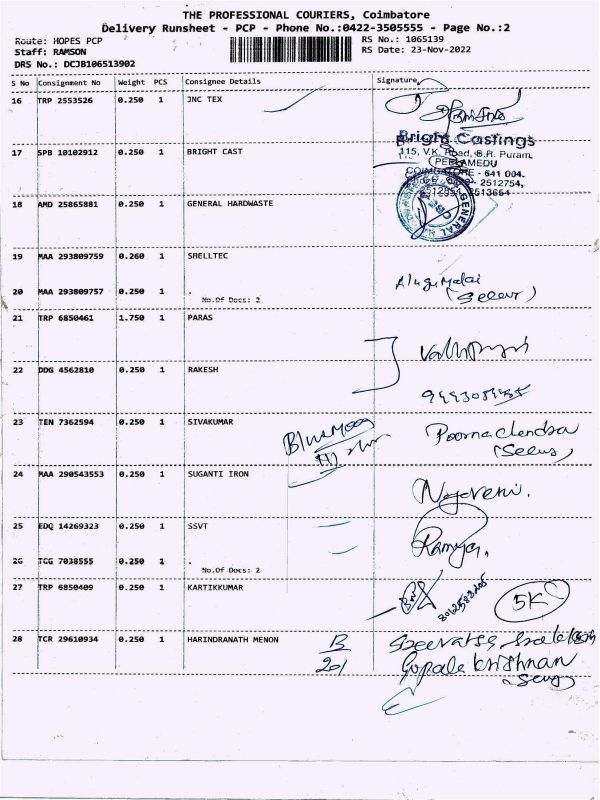 THE PROFESSIONAL COURIERS, Coimbatore
Delivery Runsheet - PCP - Phone No.:0422-3505555 - Page No.:2
Route: HOPES PCP
Staff: RAMSON
DRS No.: DCJB106513902
RS No.: 1065139
RS Date: 23-Nov-2022
S No Consignment No Weight PCS Consignee Details Signature
16 TRP 2553526 0.250 1 JNC TEX
Bright Castings
115, V.K. Road, S.R. Puram,
PEELAMEDU
COIMBATORE - 641 004.
2512754,
2512954, 2513664
17 SPB 10102912 0.250 1 BRIGHT CAST
18 AMD 25865881 0.250 1 GENERAL HARDWASTE
GENERAL
19 MAA 293809759 0.260 1 SRELLTEC
20 MAA 293809757 0.250 1 .
No.Of Docs: 2
21 TRP 6850461 1.750 1 PARAS
22 DDG 4562810 0.250 1 RAKESH
23 TEN 7362594 0.250 1 SIVAKUMAR
Bluemoon
Poornachendra
24 MAA 290543553 0.250 1 SUGANTI IRON
Nageveni.
25 EDQ 14269323 0.250 1 SSVT
Ramya.
26 TCG 7038555 0.250 1 .
No.Of Docs: 2
27 TRP 6850409 1 KARTIKKUMAR
5K
28 TCR 29610934 0.250 1 HARINDRANATH MENON
B
201
Gopala krishnan